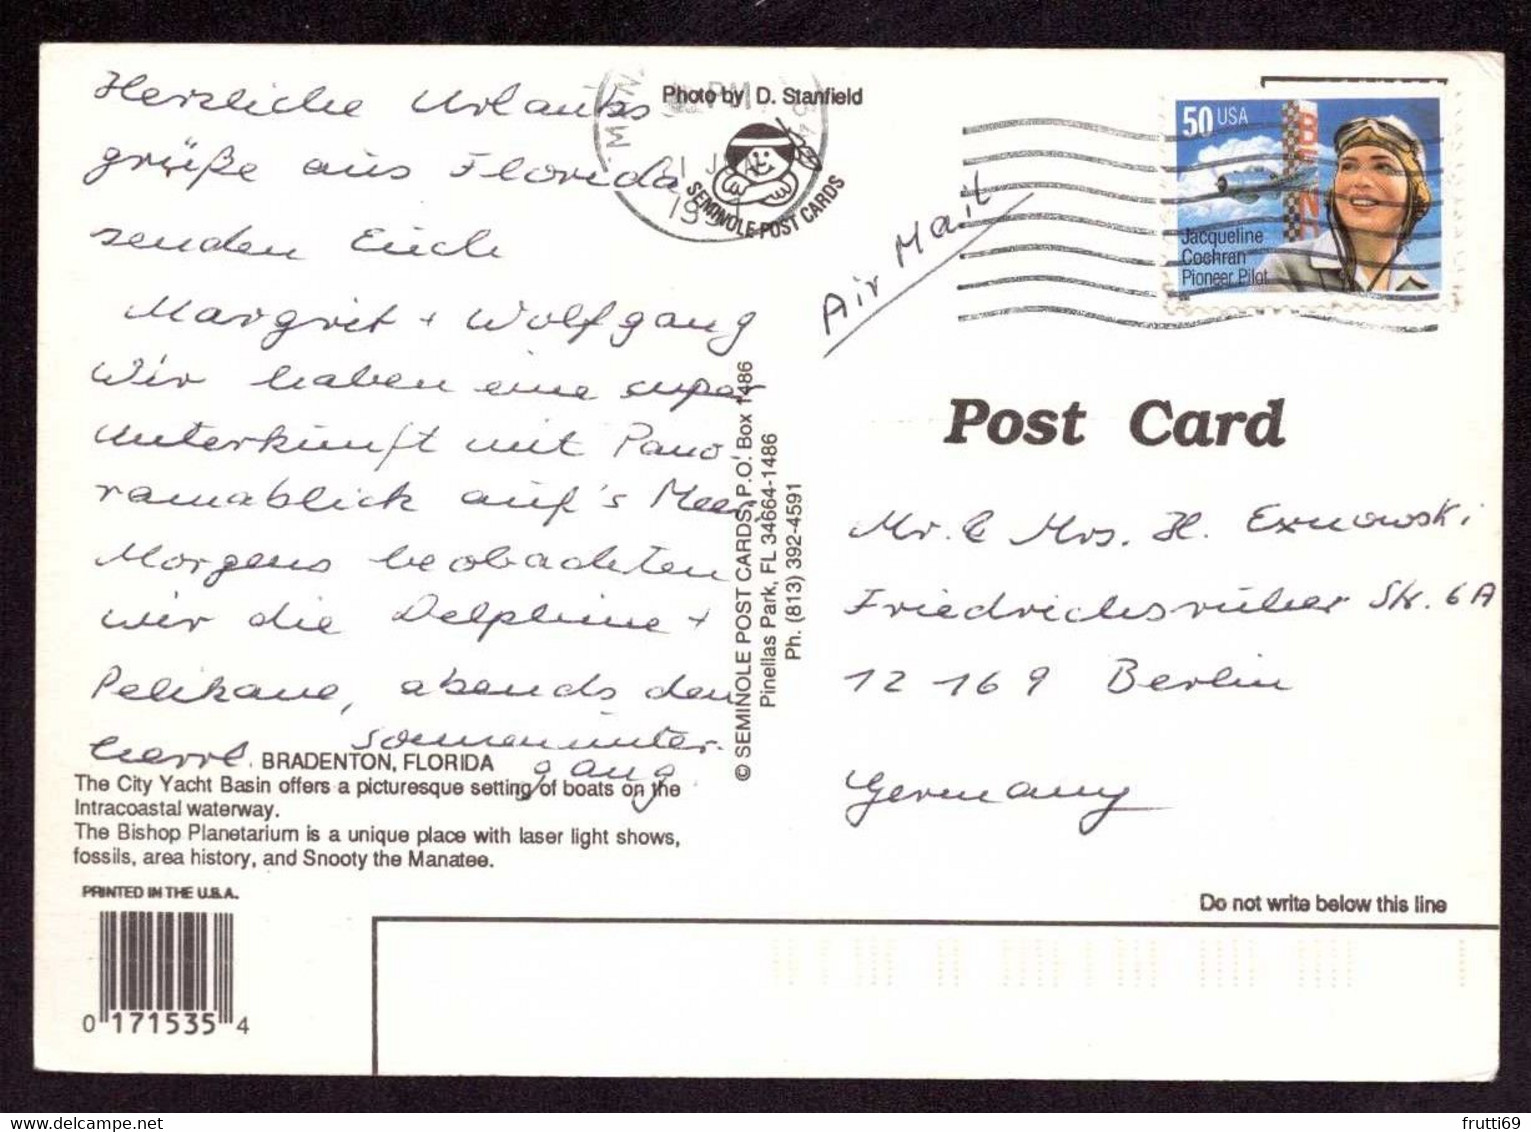 Herzliche Urlaubs
grüße aus Florida
senden Euch
Margrit + Wolfgang
Wir haben eine super
Unterkunft mit Pano
ramablick auf's Meer.
Morgens beobachten
wir die Delphine +
Pelikane, abends den
herrl. Sonnenunter-
gang.
BRADENTON, FLORIDA
The City Yacht Basin offers a picturesque setting of boats on the
Intracoastal waterway.
The Bishop Planetarium is a unique place with laser light shows,
fossils, area history, and Snooty the Manatee.
PRINTED IN THE U.S.A.
0 171535 4
Photo by D. Stanfield
PM
SEMINOLE POST CARDS
© SEMINOLE POST CARDS, P.O. Box 1486
Pinellas Park, FL 34664-1486
Ph. (813) 392-4591
Air Mail
50 USA
Jacqueline
Cochran
Pioneer Pilot
Post Card
Mr. & Mrs. H. Exnowski
Friedrichsruher Str. 6A
12169 Berlin
Germany
Do not write below this line
frutti69